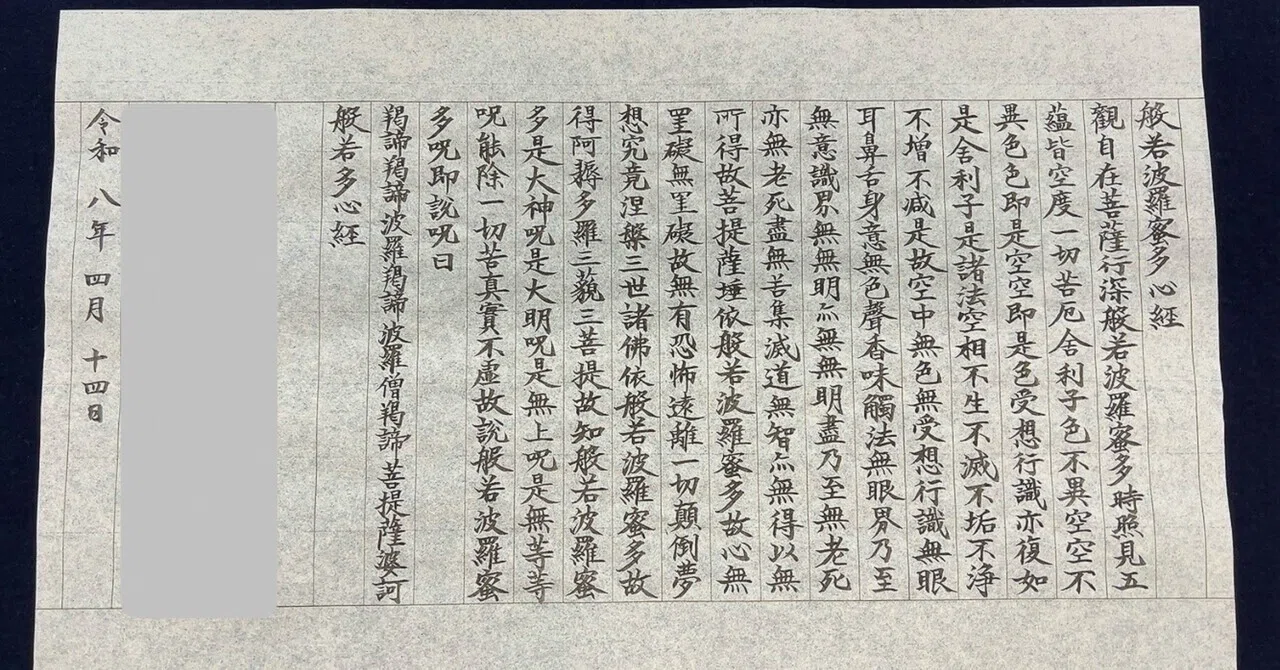 般若波羅蜜多心經
觀自在菩薩行深般若波羅蜜多時照見五
蘊皆空度一切苦厄舍利子色不異空空不
異色色即是空空即是色受想行識亦復如
是舍利子是諸法空相不生不滅不垢不浄
不增不減是故空中無色無受想行識無眼
耳鼻舌身意無色聲香味觸法無眼界乃至
無意識界無無明亦無無明盡乃至無老死
亦無老死盡無苦集滅道無智亦無得以無
所得故菩提薩埵依般若波羅蜜多故心無
罣礙無罣礙故無有恐怖遠離一切顛倒夢
想究竟涅槃三世諸佛依般若波羅蜜多故
得阿耨多羅三藐三菩提故知般若波羅蜜
多是大神呪是大明呪是無上呪是無等等
呪能除一切苦真實不虛故説般若波羅蜜
多呪即説呪曰
羯諦羯諦波羅羯諦波羅僧羯諦菩提薩婆訶
般若多心經
令和八年四月十四日